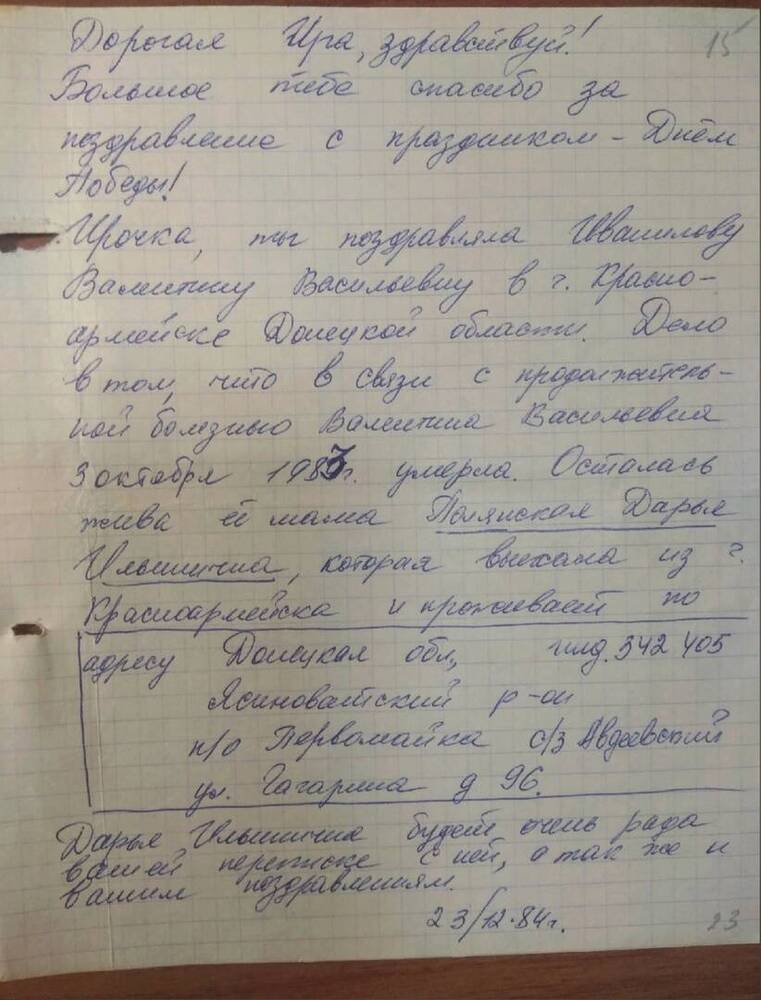 15
Дорогая Ира, здравствуй!
Большое тебе спасибо за
поздравление с праздником – Днём
Победы!
Ирочка, ты поздравляла
Валентину Васильевну в г. Красно-
армейске Донецкой области. Дело
в том, что в связи с продолжитель-
ной болезнью Валентина Васильевна
3 октября 1983г. умерла. Осталась
жива её мама Полянская Дарья
Ильинична, которая выехала из г.
Красноармейска и проживает по
адресу Донецкая обл, инд. 342 405
Ясиноватский р-он
п/о Первомайка с/з Авдеевский
ул. Гагарина д 96.
Дарья Ильинична будет очень рада
вашей переписке с ней, а так же и
вашим поздравлениям.
23/12.84г.
23